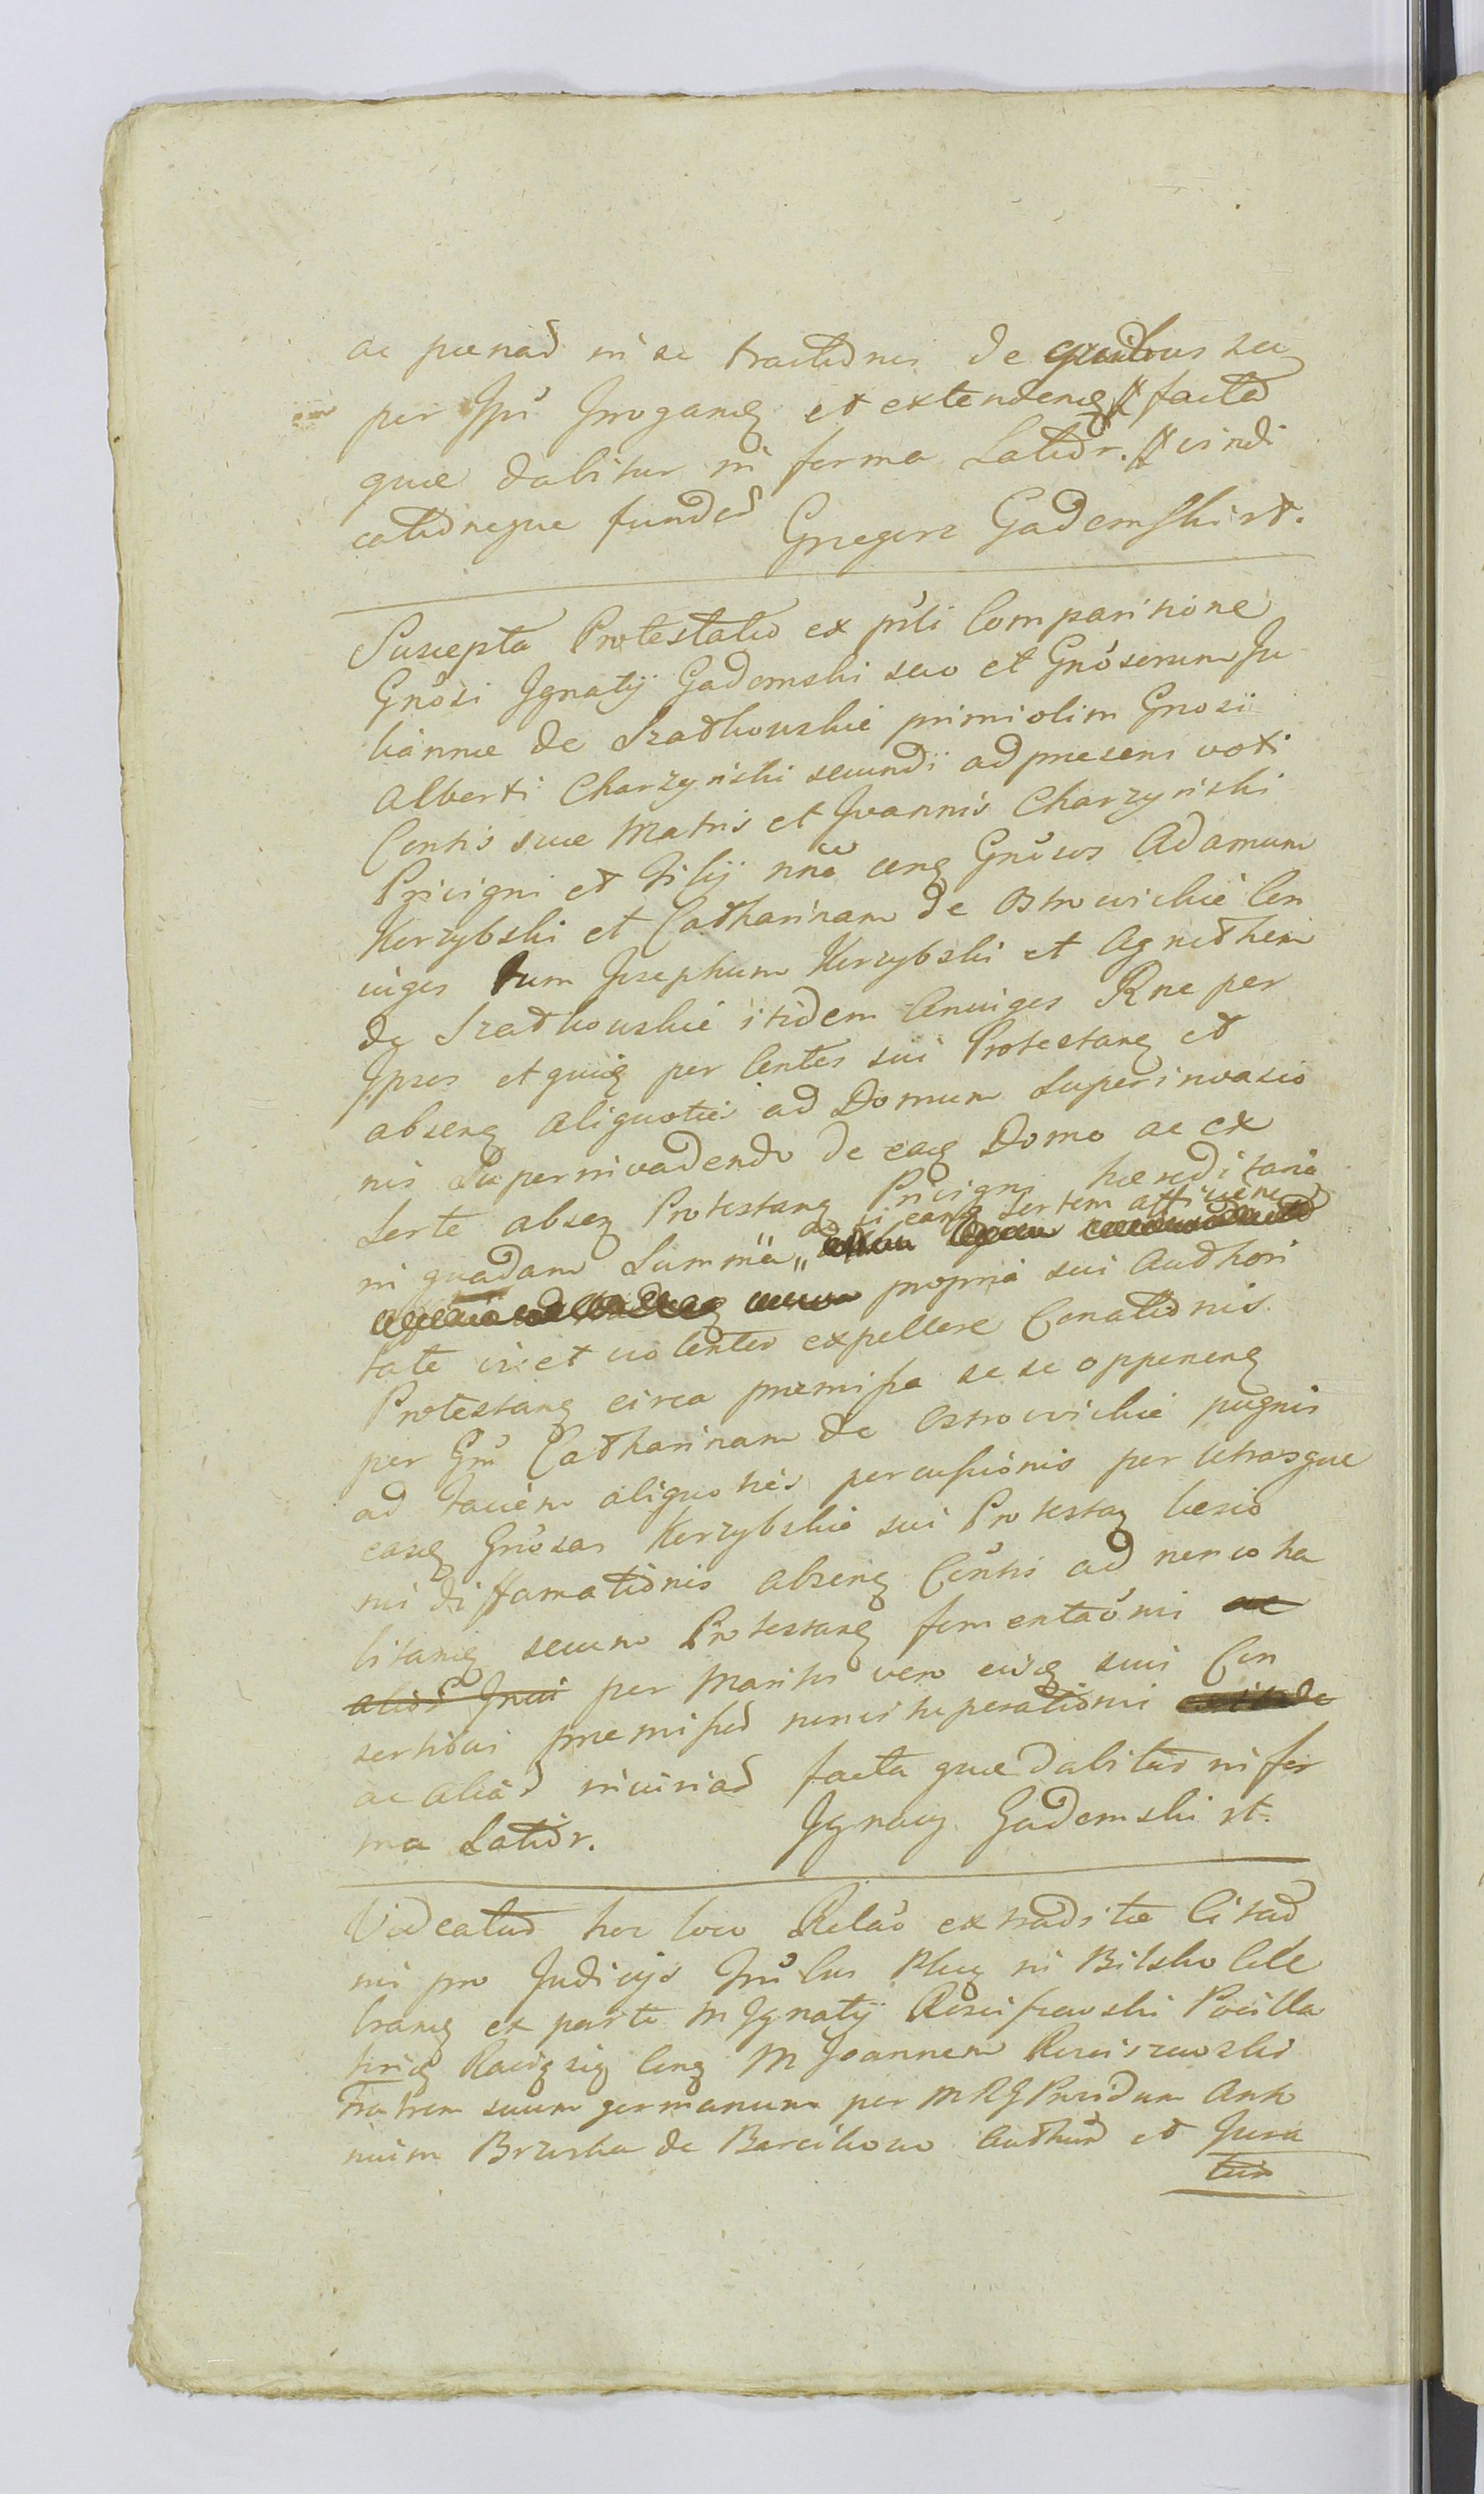 ac pœnas in se tractionis de quibus seu
per Jpsu Jrrogandę et extendendę // factas
quæ dabitur in forma Latior. // vindi
cationeque fundes Grzegorz Gadomski rt.
Suscepta Protestatio ex pñti Comparitione
Gnosi Jgnatij Gadomski suo et Gnosorum Ju
liannæ de Szadkowskie primi olim Gnosi
Alberti Charzyński secundi ad præsens voti
Contis suæ Matris et Joannis Charzyński
Privigni et filij nñe ceng Gnosos Adamum
Korzybski et Catharinam de Ostrowickie Con
iuges tum Josephum Korzybski et Agnethem
de Szadkowskie itidem Coniuges Rne per
Jpsos et quiq per Contes sui Protestanę et
absenę aliquoties ad Domum Superinvasio
nis Superinvadendo de eaq Domo ac ex
Sorte absenę Protestanę Privigni hæreditaria
in quadam Summa „ ac si eang Sortem attinene
propria sui Authori
tate vi et violenter expellere Conationis
Protestanę circa præmissa se se opponenę
per Gm Catharinam de Ostrowickie pugnis
ad faciem aliquoties percussionis per Utrasque
easq Gnosas Korzybskie sui Protestaę læsio
nis diffamationis absenę Contis ad non coha
bitandę secum Protestanę fomentaoni ac
alias Jnui per Maritos vero eisq suis Con
sortibus præmissa non vituperationi
ac alias iniurias facta quæ dabitur in for
ma Latior. Jgnacy Gadomski rt.
Videatur hoc loco Relao extraditæ Citao
ni pro Judicijs Plucę in Bilsko Cele
brandę ex parte M Jgnatij Rosciszewski Pocilla
toris Raciąsię Conę M Joannem Rosciszewski
Fratrem suum germanum per MRG Providum Anto
nium Brzuska de Barcikowo Authum et Jura
tum